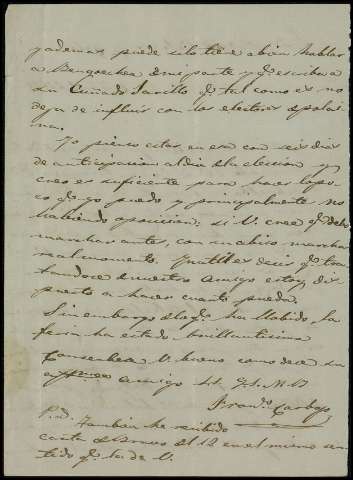 y ademas puede si lo tiene a bien hablar
a Bengoechea de mi parte y qe escriba a
su Cuñado Jarillo qe tal como es no
deja de influir con los electores
Yo pienso estar en esa con seis dias
de anticipacion al dia de la eleccion y
creo es suficiente para hacer lo po-
co qe yo puedo y principalmente no
habiendo oposicion; si V. cree qe debo
marchar antes, con su abiso marcharé
al momento. Inutil es decir qe tra-
tandose de nuestro amigo estoy dis
puesto a hacer cuanto pueda.
Sin embargo de lo qe ha llobido la
feria ha estado brillantisima
Consérbese V. bueno como desea su
afmo amigo
Frano. Carbajo
P.d. Tambien he recibido
carta de Bravo del 12 en el mismo sen-
tido qe la de V.